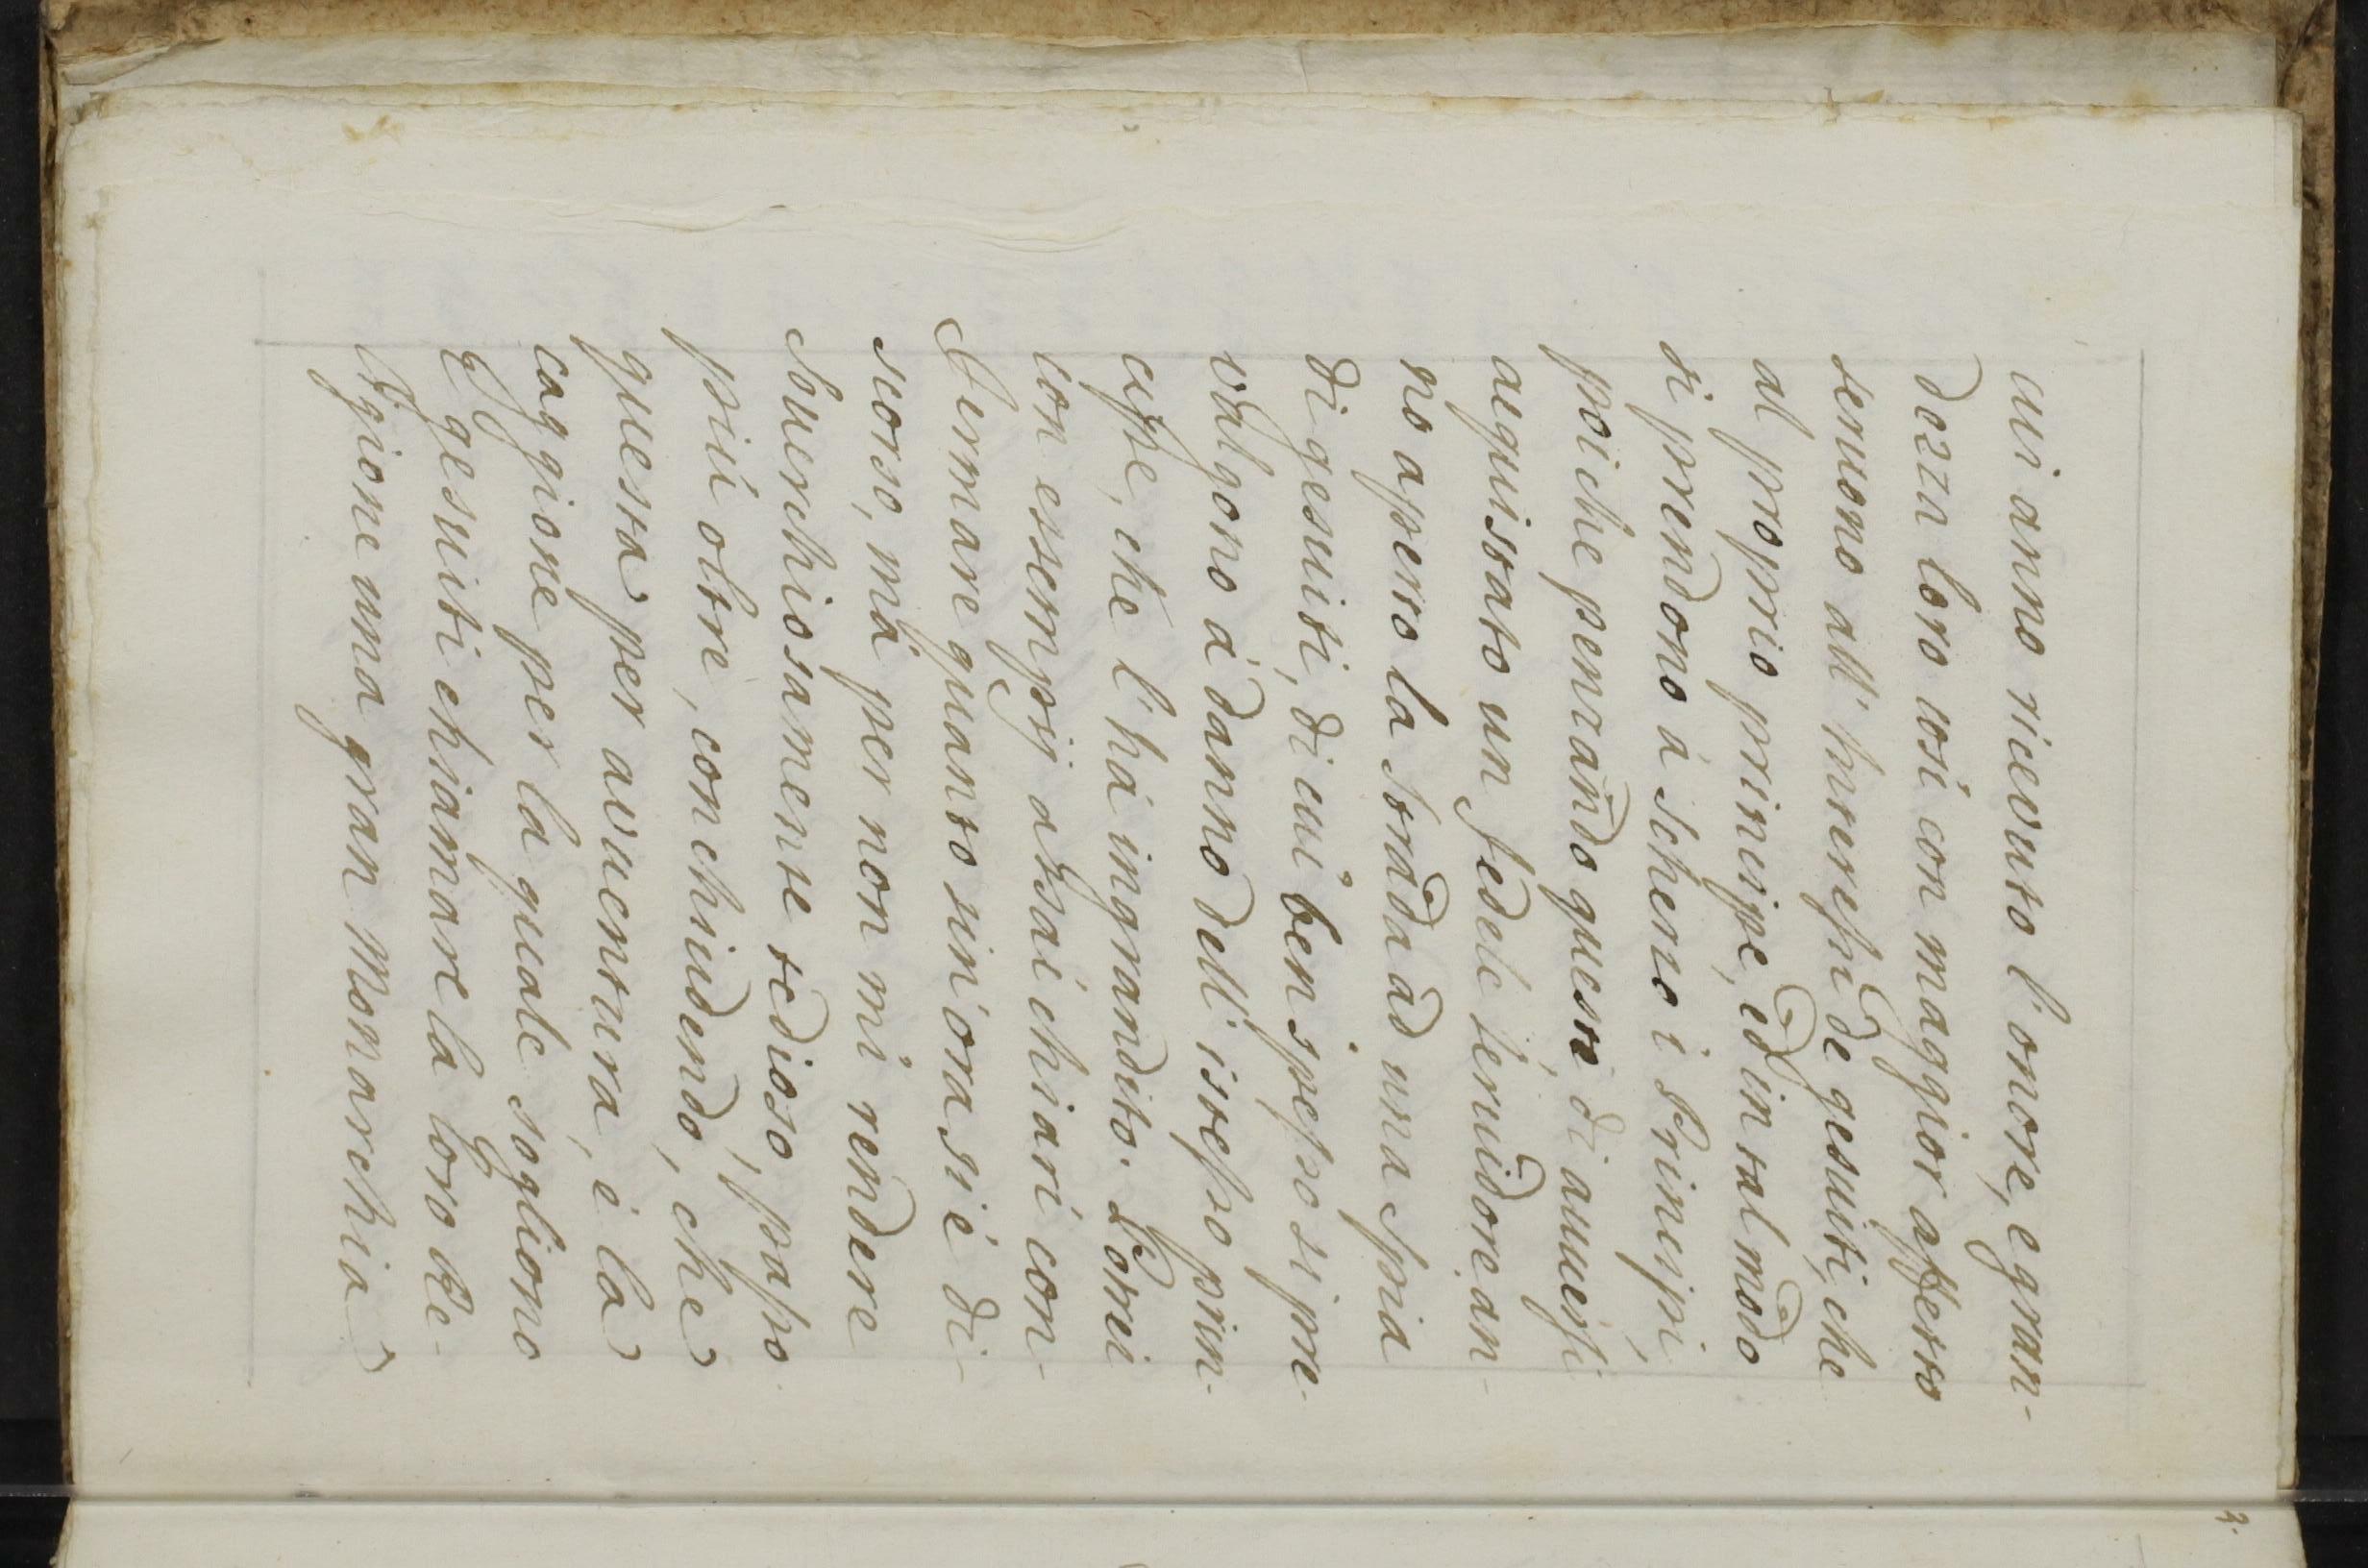 cui anno ricevuto l'onore, e gran-
dezza loro così con maggior affetto
seruono all' hnrinessi de gesuiti, che
al proprio principe, ed in tal modo
si prendono á scherno i Principi,
poiche pensando questi, di auuersi
acquistato un fedele seruidore, an-
no aperto la strada ad una spia
di gesuiti, di cui ben spesso si pre-
valgono á danno dell' istesso prin-
cipe, che l' há ingrandito. Potrei
con essempij assai chiari con-
firmare quanto sin' ora si é di-
scorso, má per non mi rendere
souerchiosamente tedioso, passo
più oltre, conchiudendo, che
questa per avuentura, é la
caggione per la quale sogliono
i gesuiti chiamare la loro Re-
ligione una gran Monarchia
2.